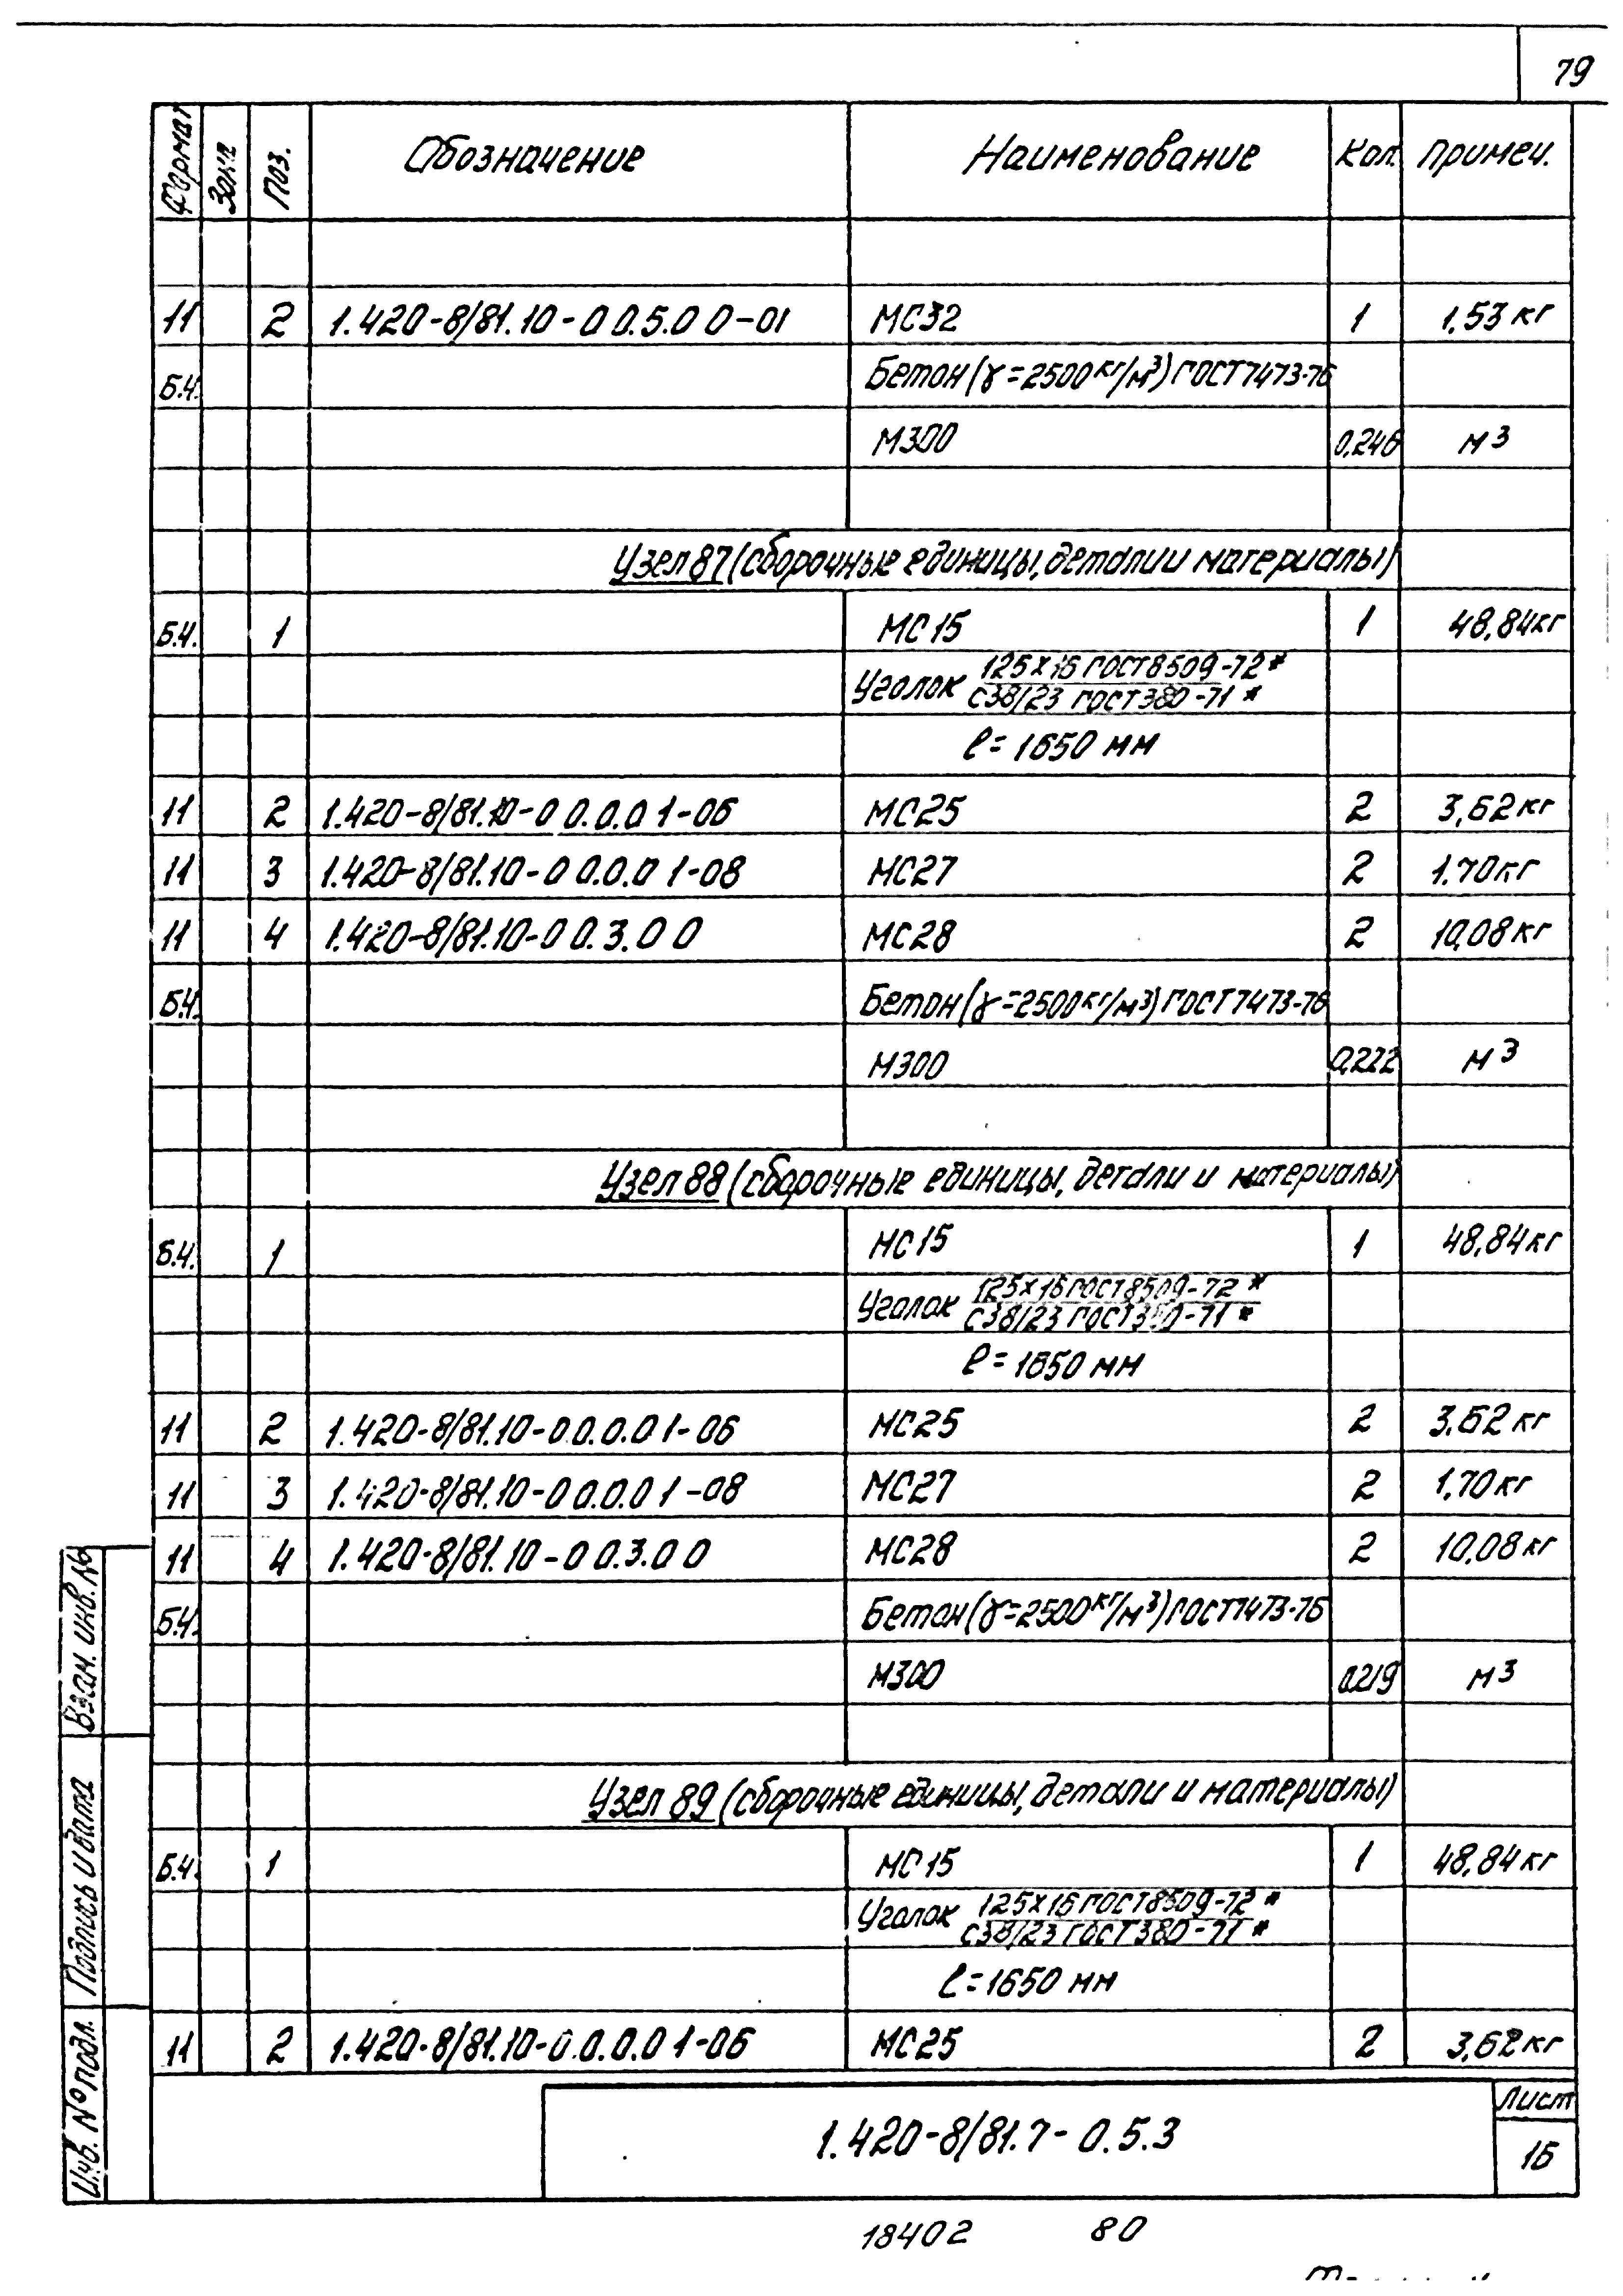 79
Формат Зона Поз. Обозначение Наименование Кол. Примеч.
11 2 1.420-8/81.10-00.5.00-01 МС32 1 1,53 кг
Б.Ч. Бетон (γ=2500кг/м³) ГОСТ 7473-76
М300 0,246 м³
Узел 87 (сборочные единицы, детали и материалы)
Б.Ч. 1 МС15 1 48,84 кг
Уголок 125х16 ГОСТ 8509-72*
С38/23 ГОСТ 380-71*
ℓ=1650 мм
11 2 1.420-8/81.10-00.0.01-06 МС25 2 3,62 кг
11 3 1.420-8/81.10-00.0.01-08 МС27 2 1,70 кг
11 4 1.420-8/81.10-00.3.00 МС28 2 10,08 кг
Б.Ч. Бетон (γ=2500кг/м³) ГОСТ 7473-76
М300 0,222 м³
Узел 88 (сборочные единицы, детали и материалы)
Б.Ч. 1 МС15 1 48,84 кг
Уголок 125х16 ГОСТ 8509-72*
С38/23 ГОСТ 380-71*
ℓ=1650 мм
11 2 1.420-8/81.10-00.0.01-06 МС25 2 3,62 кг
11 3 1.420-8/81.10-00.0.01-08 МС27 2 1,70 кг
11 4 1.420-8/81.10-00.3.00 МС28 2 10,08 кг
Б.Ч. Бетон (γ=2500кг/м³) ГОСТ 7473-76
М300 0,219 м³
Узел 89 (сборочные единицы, детали и материалы)
Б.Ч. 1 МС15 1 48,84 кг
Уголок 125х16 ГОСТ 8509-72*
С38/23 ГОСТ 380-71*
ℓ=1650 мм
11 2 1.420-8/81.10-0.0.0.01-06 МС25 2 3,62 кг
Взам. инв. №
Подпись и дата
Инв. № подл.
1.420-8/81.7-0.5.3
Лист
16
18402 80